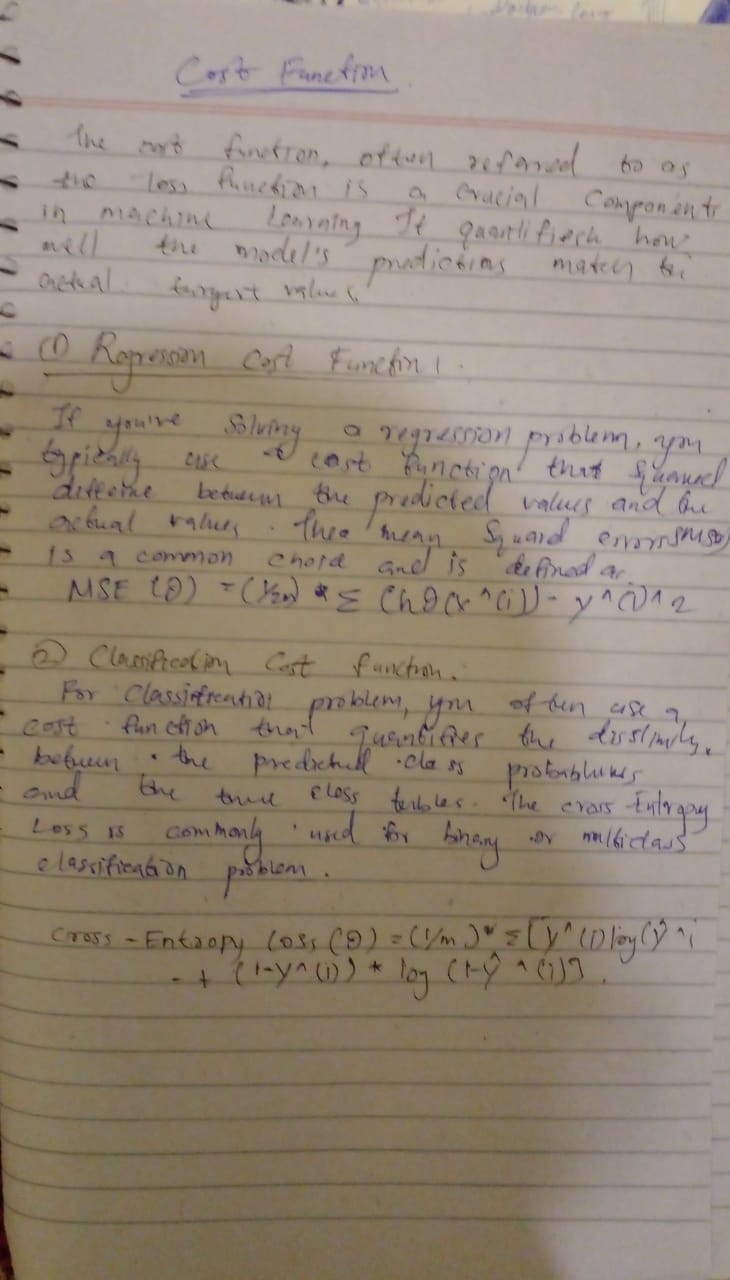 Cost Function
The cost function, often referred to as
the loss function is a crucial Components
in machine learning It quantifiesh how
well the model's predictions match the
actual target values
(1) Regression Cost Function 1.
If you're Solving a regression problem, you
typically use a cost function that squared
between the predicted values and the
actual values. Thee mean Squard errors (MSE)
is a common and is defined as
MSE (θ) = (1/2m) * Σ (hθ(x^(i)) - y^(i)^2
(2) Classification Cost function.
For Classification problem, you often use a
cost function that quantifies the
between the predicted class
and the true class The cross Entropy
Loss is commonly used for binary or multiclass
classification problem.
Cross-Entropy Loss (θ) = (1/m)* Σ[y^(i)log(ŷ^i
- + (1-y^(i)) * log (1-ŷ^(i)].